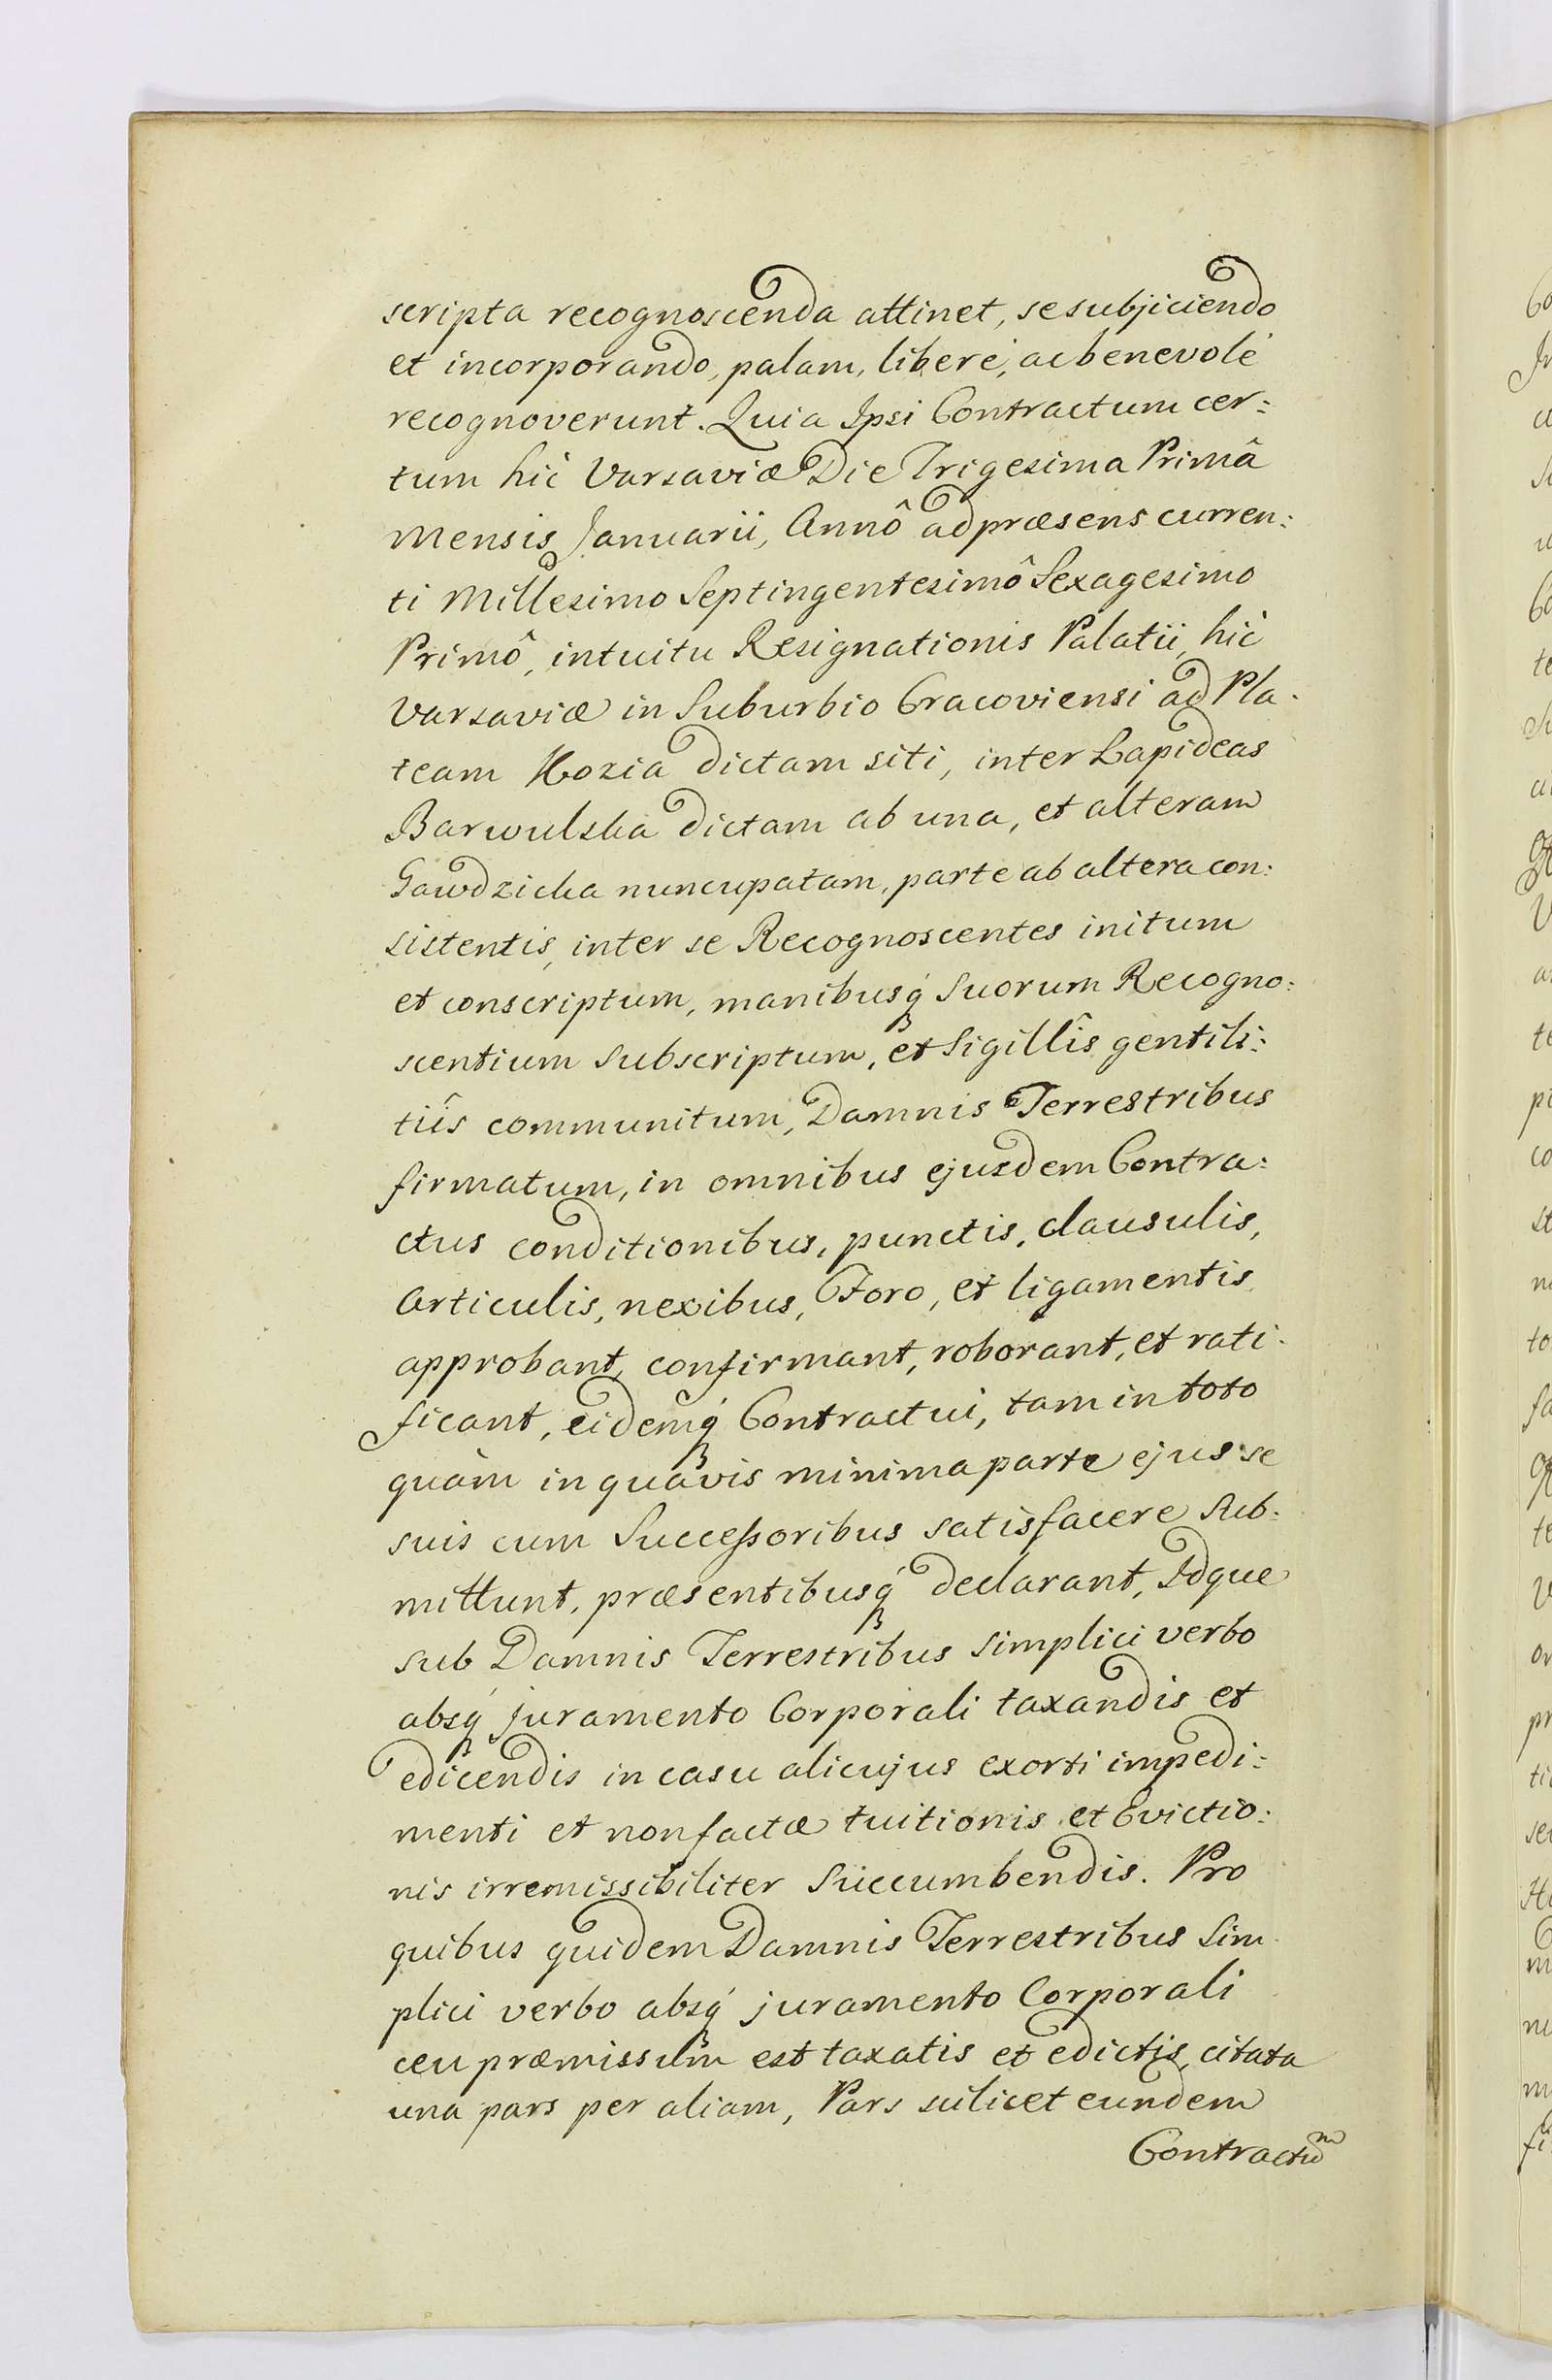 scripta recognoscenda attinet, se subjiciendo
et incorporando, palam, liberè, ac benevolè
recognoverunt. Quia Ipsi Contractum cer:
tum hìc Varsaviæ Die Trigesima Primâ
Mensis Januarii, Annô ad præsens curren:
ti Millesimo Septingentesimô Sexagesimo
Primô, intuitu Resignationis Palatii, hìc
Varsaviæ in Suburbio Cracoviensi ad Pla:
team Kozia dictam siti, inter Lapideas
Barwulska dictam ab una, et alteram
Gawdzicka nuncupatam, parte ab altera con:
sistentis, inter se Recognoscentes initum
et conscriptum, manibusq́ Suorum Recogno:
scentium Subscriptum, et Sigillîs gentili:
tiîs communitum, Damnis Terrestribus
firmatum, in omnibus ejusdem Contra:
ctus conditionibus, punctis, clausulis,
Articulis, nexibus, Foro, et ligamentis
approbant, confirmant, roborant, et rati:
ficant, eidemq́ Contractui, tam in toto
quàm in quavis minima parte ejus se
suis cum Successoribus satisfacere Sub:
mittunt, præsentibusq́ declarant, Idque
sub Damnis Terrestribus Simplici verbo
absq́ juramento Corporali taxandis et
edicendis in casu alicujus exorti impedi:
menti et non factæ tuitionis et Evictio:
nis irremissibiliter Succumbendis. Pro
quibus quidem Damnis Terrestribus Sim
plici verbo absq́ juramento Corporali
ceu præmissum est taxatis et edictis, citata
una pars per aliam, Pars scilicet eundem
Contractuᵐ